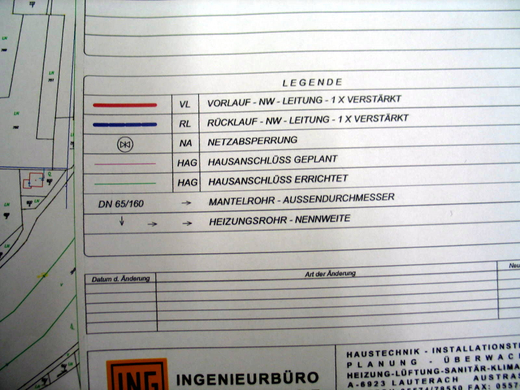 LEGENDE
VL VORLAUF - NW - LEITUNG - 1 X VERSTÄRKT
RL RÜCKLAUF - NW - LEITUNG - 1 X VERSTÄRKT
NA NETZABSPERRUNG
HAG HAUSANSCHLÜSS GEPLANT
HAG HAUSANSCHLÜSS ERRICHTET
DN 65/160 → MANTELROHR - AUSSENDURCHMESSER
↓ → → HEIZUNGSROHR - NENNWEITE
Datum d. Änderung Art der Änderung Neu
ING INGENIEURBÜRO
HAUSTECHNIK - INSTALLATIONSTE
PLANUNG - ÜBERWAC
HEIZUNG-LÜFTUNG-SANITÄR-KLIMA
A-6923 LAUTERACH AUSTRAS
05574/78550 FAX: 0557